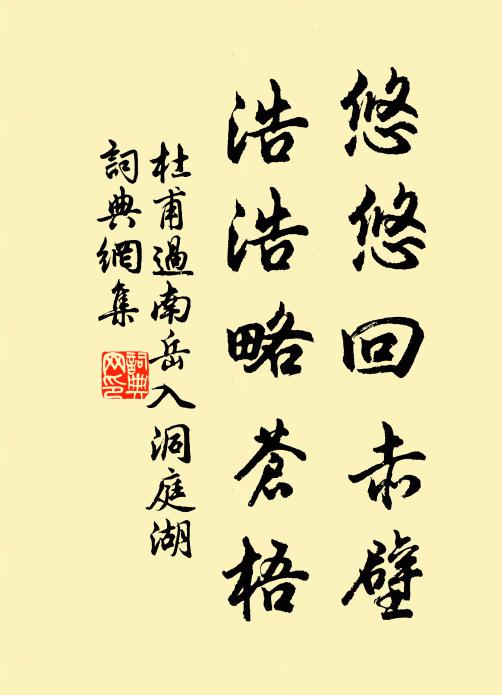 悠悠回赤壁
浩浩略蒼梧
杜甫過南岳入洞庭湖
詞典網集
詞典网印